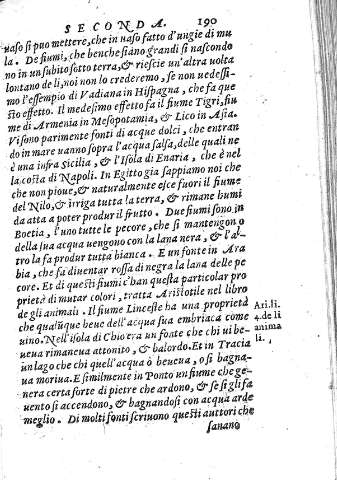 SECONDA. 190
uaso si puo mettere, che in uaso fatto d'ungie di mu
la. De fiumi, che benche sian grandi si nascondo
no in un subito sotto terra, & riescie un'altra uolta
lontano de li, noi non lo crederemo, se non uedessi-
mo l'essempio di Vadiana in Hispagna, che fa que
sto effetto. Il medesimo effetto fa il fiume Tigri, fiu
me di Armenia in Mesopotamia, & Lico in Asia.
Vi sono parimente fonti di acque dolci, che entran
do in mare uanno sopra l'acqua salsa, delle quali ne
è una infra Sicilia, & l'Isola di Enaria, che è nel
la costa di Napoli. In Egitto gia sappiamo noi che
che non pioue, & naturalmente esce fuori il fiume
del Nilo, & irriga tutta la terra, & rimane humi
da atta a poter produr il frutto. Due fiumi sono in
Boetia, l'uno tutte le pecore, che si mantengono
della sua acqua uengono con la lana nera, & l'al-
tro la fa produr tutta bianca. E un fonte in Ara
bia, che fa diuentar rossa di negra la lana delle pe
core. Et di questi fiumi c'han questa particolar pro
prietà di mutar colori, tratta Aristotile nel libro
de gli animali. Il fiume Linceste ha una proprietà
che qualũque beue dell'acqua sua embriaca come
uino. Nell'isola di Chio era un fonte che chi ui be-
ueua rimaneua attonito, & balordo. Et in Tracia
un lago che chi quell'acqua ò beueua, o si bagna-
ua moriua. E similmente in Ponto un fiume che ge-
nera certa sorte di pietre che ardono, & se si gli fa
uento si accendono, & bagnandosi con acqua arde
meglio. Di molti fonti scriuono questi auttori che
sanano
Ari. li.
4. de li
anima
li.